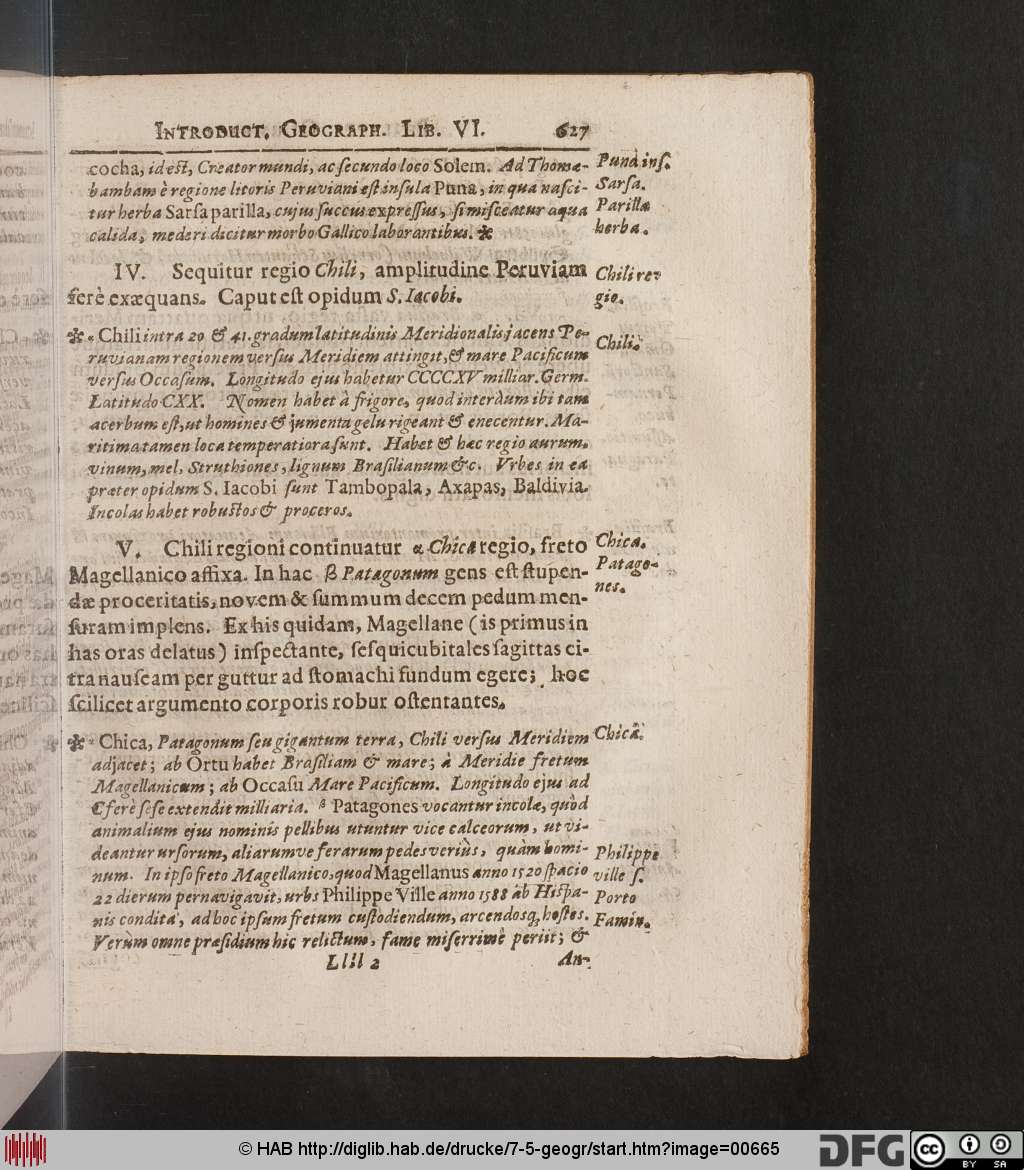 INTRODUCT. GEOGRAPH. LIB. VI. 627
cocha, id eſt, Creator mundi, ac ſecundo loco Solem. Ad Thomæ-
bambam è regione litoris Peruviani eſt inſula Puna, in qua naſci-
tur herba Sarſaparilla, cujus ſuccus expreſſus, ſi miſceatur aqua
calida, mederi dicitur morbo Gallico laborantibus. *
Puna inſ.
Sarſa.
Parilla
herba.
IV. Sequitur regio Chili, amplitudine Peruviam
ferè exæquans. Caput eſt opidum S. Iacobi.
Chili re-
gio.
* α Chili intra 20 & 41. gradum latitudinis Meridionalis jacens Pe-
ruvianam regionem verſus Meridiem attingit, & mare Pacificum
verſus Occaſum. Longitudo ejus habetur CCCCXV milliar. Germ.
Latitudo CXX. Nomen habet à frigore, quod interdum ibi tam
acerbum eſt, ut homines & jumenta gelu rigeant & enecentur. Ma-
ritima tamen loca temperatiora ſunt. Habet & hæc regio aurum,
vinum, mel, Struthiones, lignum Braſilianum &c. Vrbes in ea
præter opidum S. Iacobi ſunt Tambopala, Axapas, Baldivia.
Incolas habet robuſtos & proceros.
Chili.
V. Chili regioni continuatur α Chica regio, freto
Magellanico affixa. In hac β Patagonum gens eſt ſtupen-
dæ proceritatis, novem & ſummum decem pedum men-
ſuram implens. Ex his quidam, Magellane (is primus in
has oras delatus) inſpectante, ſeſquicubitales ſagittas ci-
tra nauſeam per guttur ad ſtomachi fundum egere; hoc
ſcilicet argumento corporis robur oſtentantes.
Chica.
Patago-
nes.
* α Chica, Patagonum ſeu gigantum terra, Chili verſus Meridiem
adjacet; ab Ortu habet Braſiliam & mare; à Meridie fretum
Magellanicum; ab Occaſu Mare Pacificum. Longitudo ejus ad
C ferè ſeſe extendit milliaria. β Patagones vocantur incolæ, quòd
animalium ejus nominis pellibus utuntur vice calceorum, ut vi-
deantur urſorum, aliarumve ferarum pedes veriùs, quàm homi-
num. In ipſo freto Magellanico, quod Magellanus anno 1520 ſpacio
22 dierum pernavigavit, urbs Philippe Ville anno 1588 ab Hiſpa-
nis condita, ad hoc ipſum fretum cuſtodiendum, arcendosq; hoſtes.
Verùm omne præſidium hic relictum, fame miſerrimè periit; &
Chica.
Philippe
ville ſ.
Porto
Famin.
Llll 2 An-
© HAB http://diglib.hab.de/drucke/7-5-geogr/start.htm?image=00665
DFG
cc
BY SA